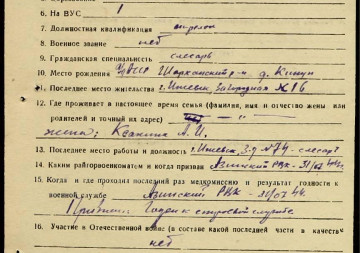 6. На ВУС 1
7. Должностная квалификация стрелок
8. Военное звание нет
9. Гражданская специальность слесарь
10. Место рождения УАССР Шарканский р-н д.
11. Последнее место жительства г. Ижевск, Загородная № 16
12. Где проживает в настоящее время семья (фамилия, имя и отчество жены или
родителей и точный их адрес)
жена: А. И.
13. Последнее место работы и должность г. Ижевск з-д № 74 - слесарь
14. Каким райгорвоенкоматом и когда призван Азинский РВК - 31/07 44г.
15. Когда и где проходил раз медкомиссию и результат годности к
военной службе Азинский РВК 31/07 44г.
Признан годен к строевой службе
16. Участие в Отечественной войне (в составе какой последней части в качестве
нет